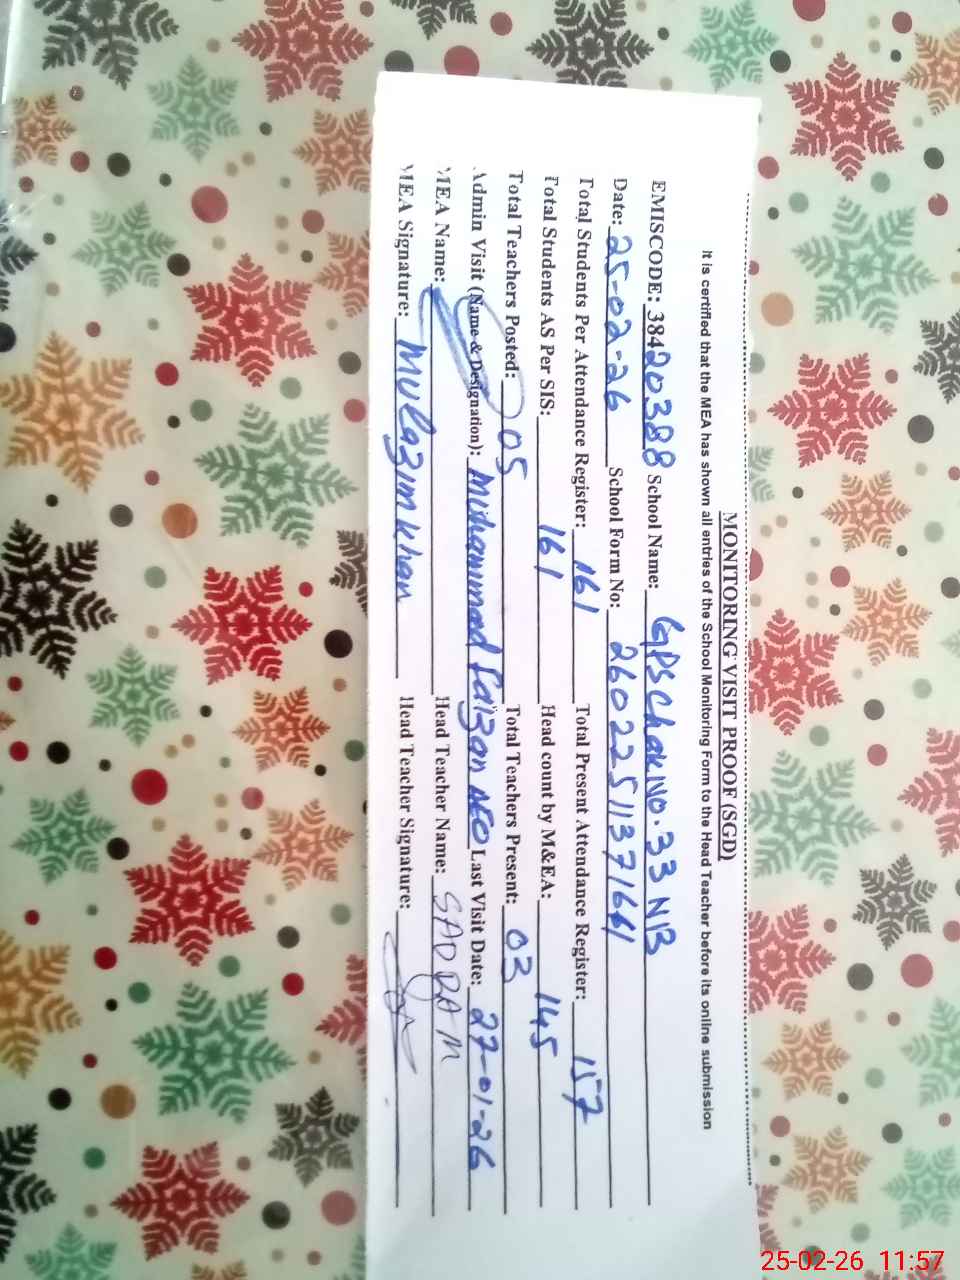 MONITORING VISIT PROOF (SGD)
It is certified that the MEA has shown all entries of the School Monitoring Form to the Head Teacher before its online submission
EMISCODE: 38420388 School Name: GPS Chak No. 33 NB
Date: 25-02-26 School Form No: 26022511371661
Total Students Per Attendance Register: 161 Total Present Attendance Register: 157
Total Students AS Per SIS: 161 Head count by M&EA: 145
Total Teachers Posted: 05 Total Teachers Present: 03
Admin Visit (Name & Designation): Muhammad Faizan AEO Last Visit Date: 27-01-26
MEA Name: Head Teacher Name: SADDAM
MEA Signature: Mulazim Khan Head Teacher Signature:
25-02-26 11:57